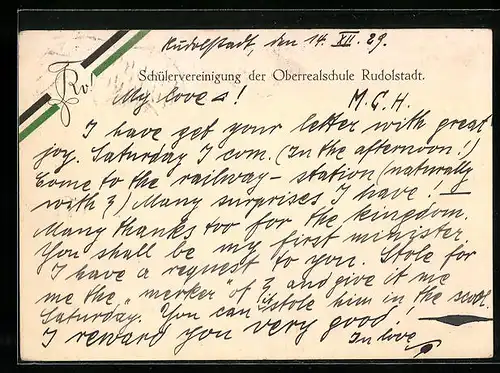 Rudolstadt, den 14. XII. 29.
Rv!
Schülervereinigung der Oberrealschule Rudolstadt.
My loves! M. G. H.
I have get your letter with great
joy. Saturday I com. (In the afternoon!)
Come to the railway-station (naturally
with 3) Many surprises I have! —
Many thanks too for the kingdom.
You shall be my first minister.
I have a request to you. Stole for
me the "merker" of 3 and give it me
Saturday. You can stole him in the
I reward you very good!
In love